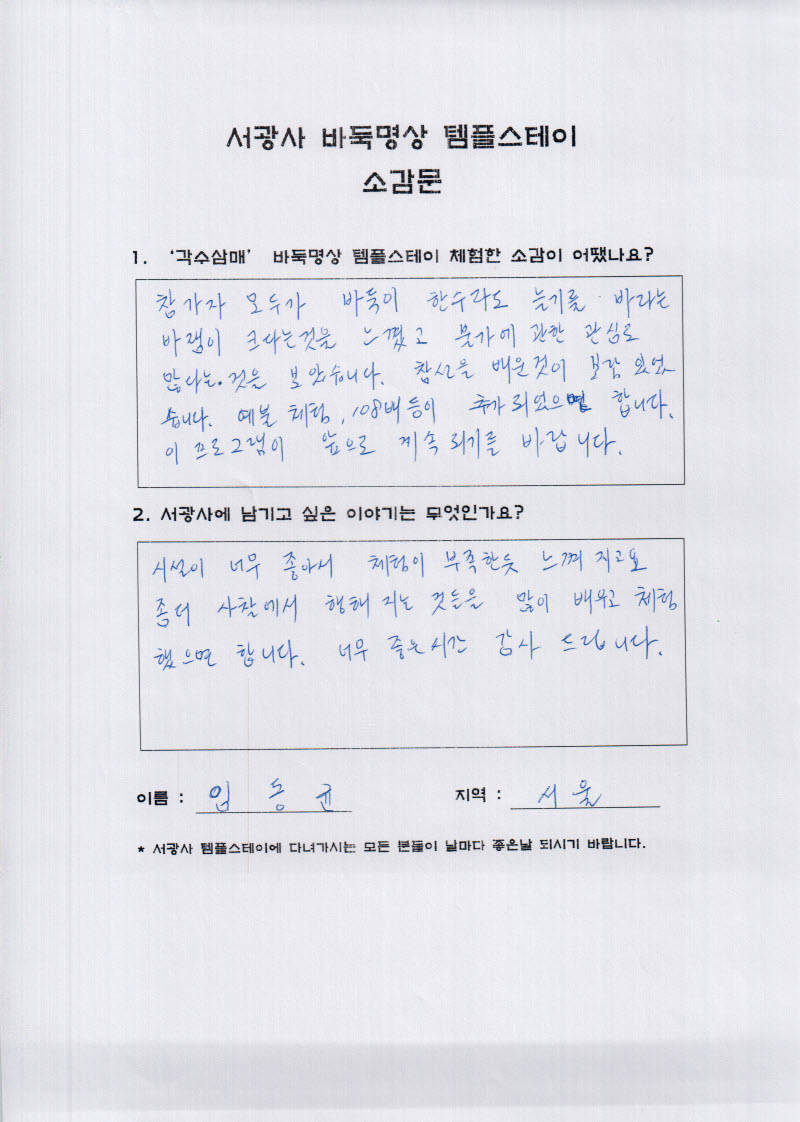 서광사 바둑명상 템플스테이
소감문
1. '각수삼매' 바둑명상 템플스테이 체험한 소감이 어땠나요?
참가자 모두가 바둑이 한수라도 늘기를 바라는
바램이 크다는것을 느꼈고 불가에 관한 관심도
많다는 것을 보았습니다. 참선을 배운것이 보람 있었
습니다. 예불 체험, 108배 등이 추가 되었으면 합니다.
이 프로그램이 앞으로 계속 되기를 바랍니다.
2. 서광사에 남기고 싶은 이야기는 무엇인가요?
시설이 너무 좋아서 체험이 부족한듯 느껴 지고요
좀더 사찰에서 행해 지는 것들을 많이 배우고 체험
했으면 합니다. 너무 좋은시간 감사 드립니다.
이름 : 임동균 지역 : 서울
* 서광사 템플스테이에 다녀가시는 모든 분들이 날마다 좋은날 되시기 바랍니다.